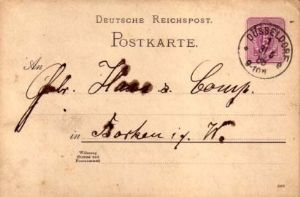 DEUTSCHE REICHSPOST.
POSTKARTE.
DÜSSELDORF
An
Gebr. Haas & Comp.
in Borken i/ W.
Wohnung